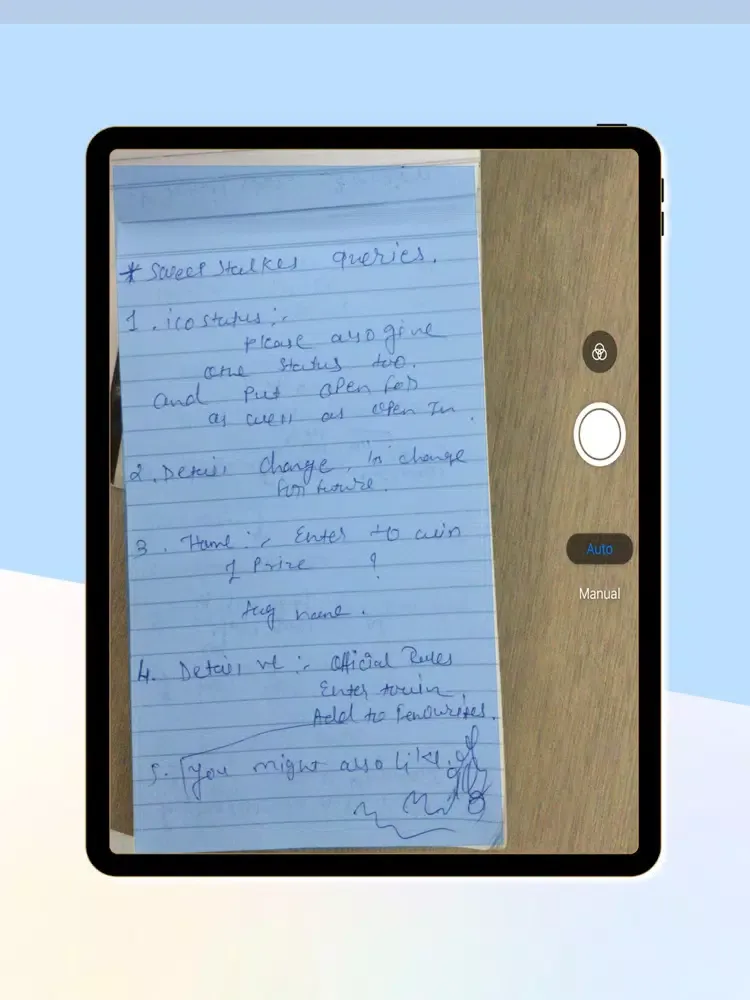 * Sweepstalkes queries.
1. ico status :-
Please also give
one status too.
and Put open for
as well as open In.
2. Detail Change, in change
for future.
3. Home :- Enter to win
1 Prize ?
Tag name.
4. Detail :- Official Rules
Enter to win
Add to Favourites.
5. You might also like.
Auto
Manual